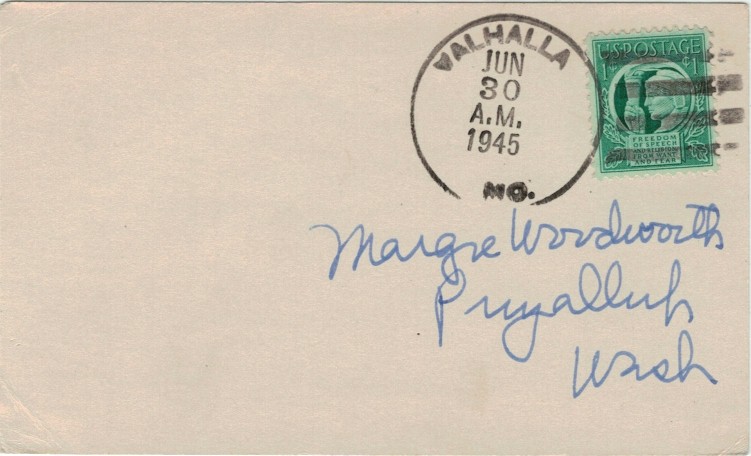 VALHALLA
JUN
30
A.M.
1945
MO.
U.S. POSTAGE
1¢ ¢1
FREEDOM
OF SPEECH
AND RELIGION
FROM WANT
AND FEAR
Margie Woodworth
Puyallup
Wash